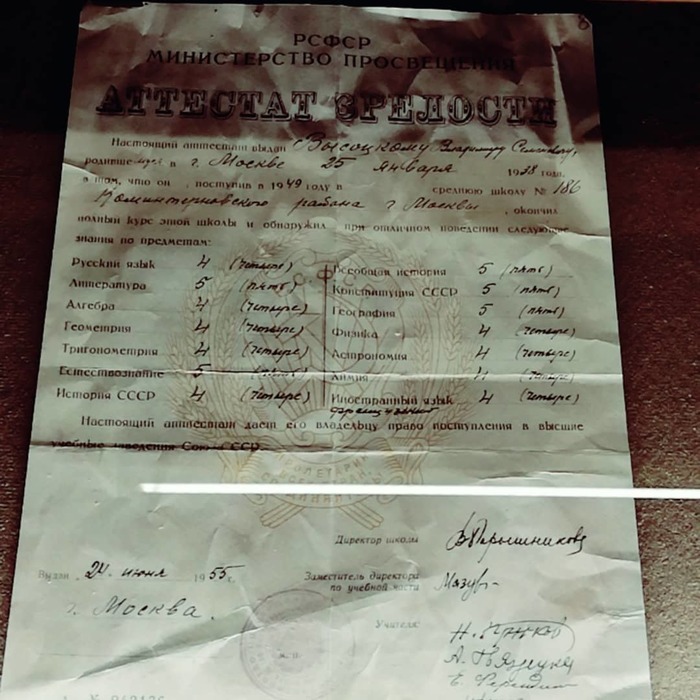 РСФСР
МИНИСТЕРСТВО ПРОСВЕЩЕНИЯ
АТТЕСТАТ ЗРЕЛОСТИ
Настоящий аттестат выдан Высоцкому Владимиру Семеновичу,
родившемуся в г. Москве 25 января 1938 года,
в том, что он, поступив в 1949 году в среднюю школу № 186
Коминтерновского района г. Москвы, окончил
полный курс этой школы и обнаружил при отличном поведении следующие
знания по предметам:
Русский язык 4 (четыре) Всеобщая история 5 (пять)
Литература 5 (пять) Конституция СССР 5 (пять)
Алгебра 4 (четыре) География 5 (пять)
Геометрия 4 (четыре) Физика 4 (четыре)
Тригонометрия 4 (четыре) Астрономия 4 (четыре)
Естествознание 5 (пять) Химия 4 (четыре)
История СССР 4 (четыре) Иностранный язык 4 (четыре)
французский
Настоящий аттестат дает его владельцу право поступления в высшие
учебные заведения Союза ССР.
Директор школы
Выдан 24 июня 1955 г. Заместитель директора
по учебной части Мазур
г. Москва.
Учителя: